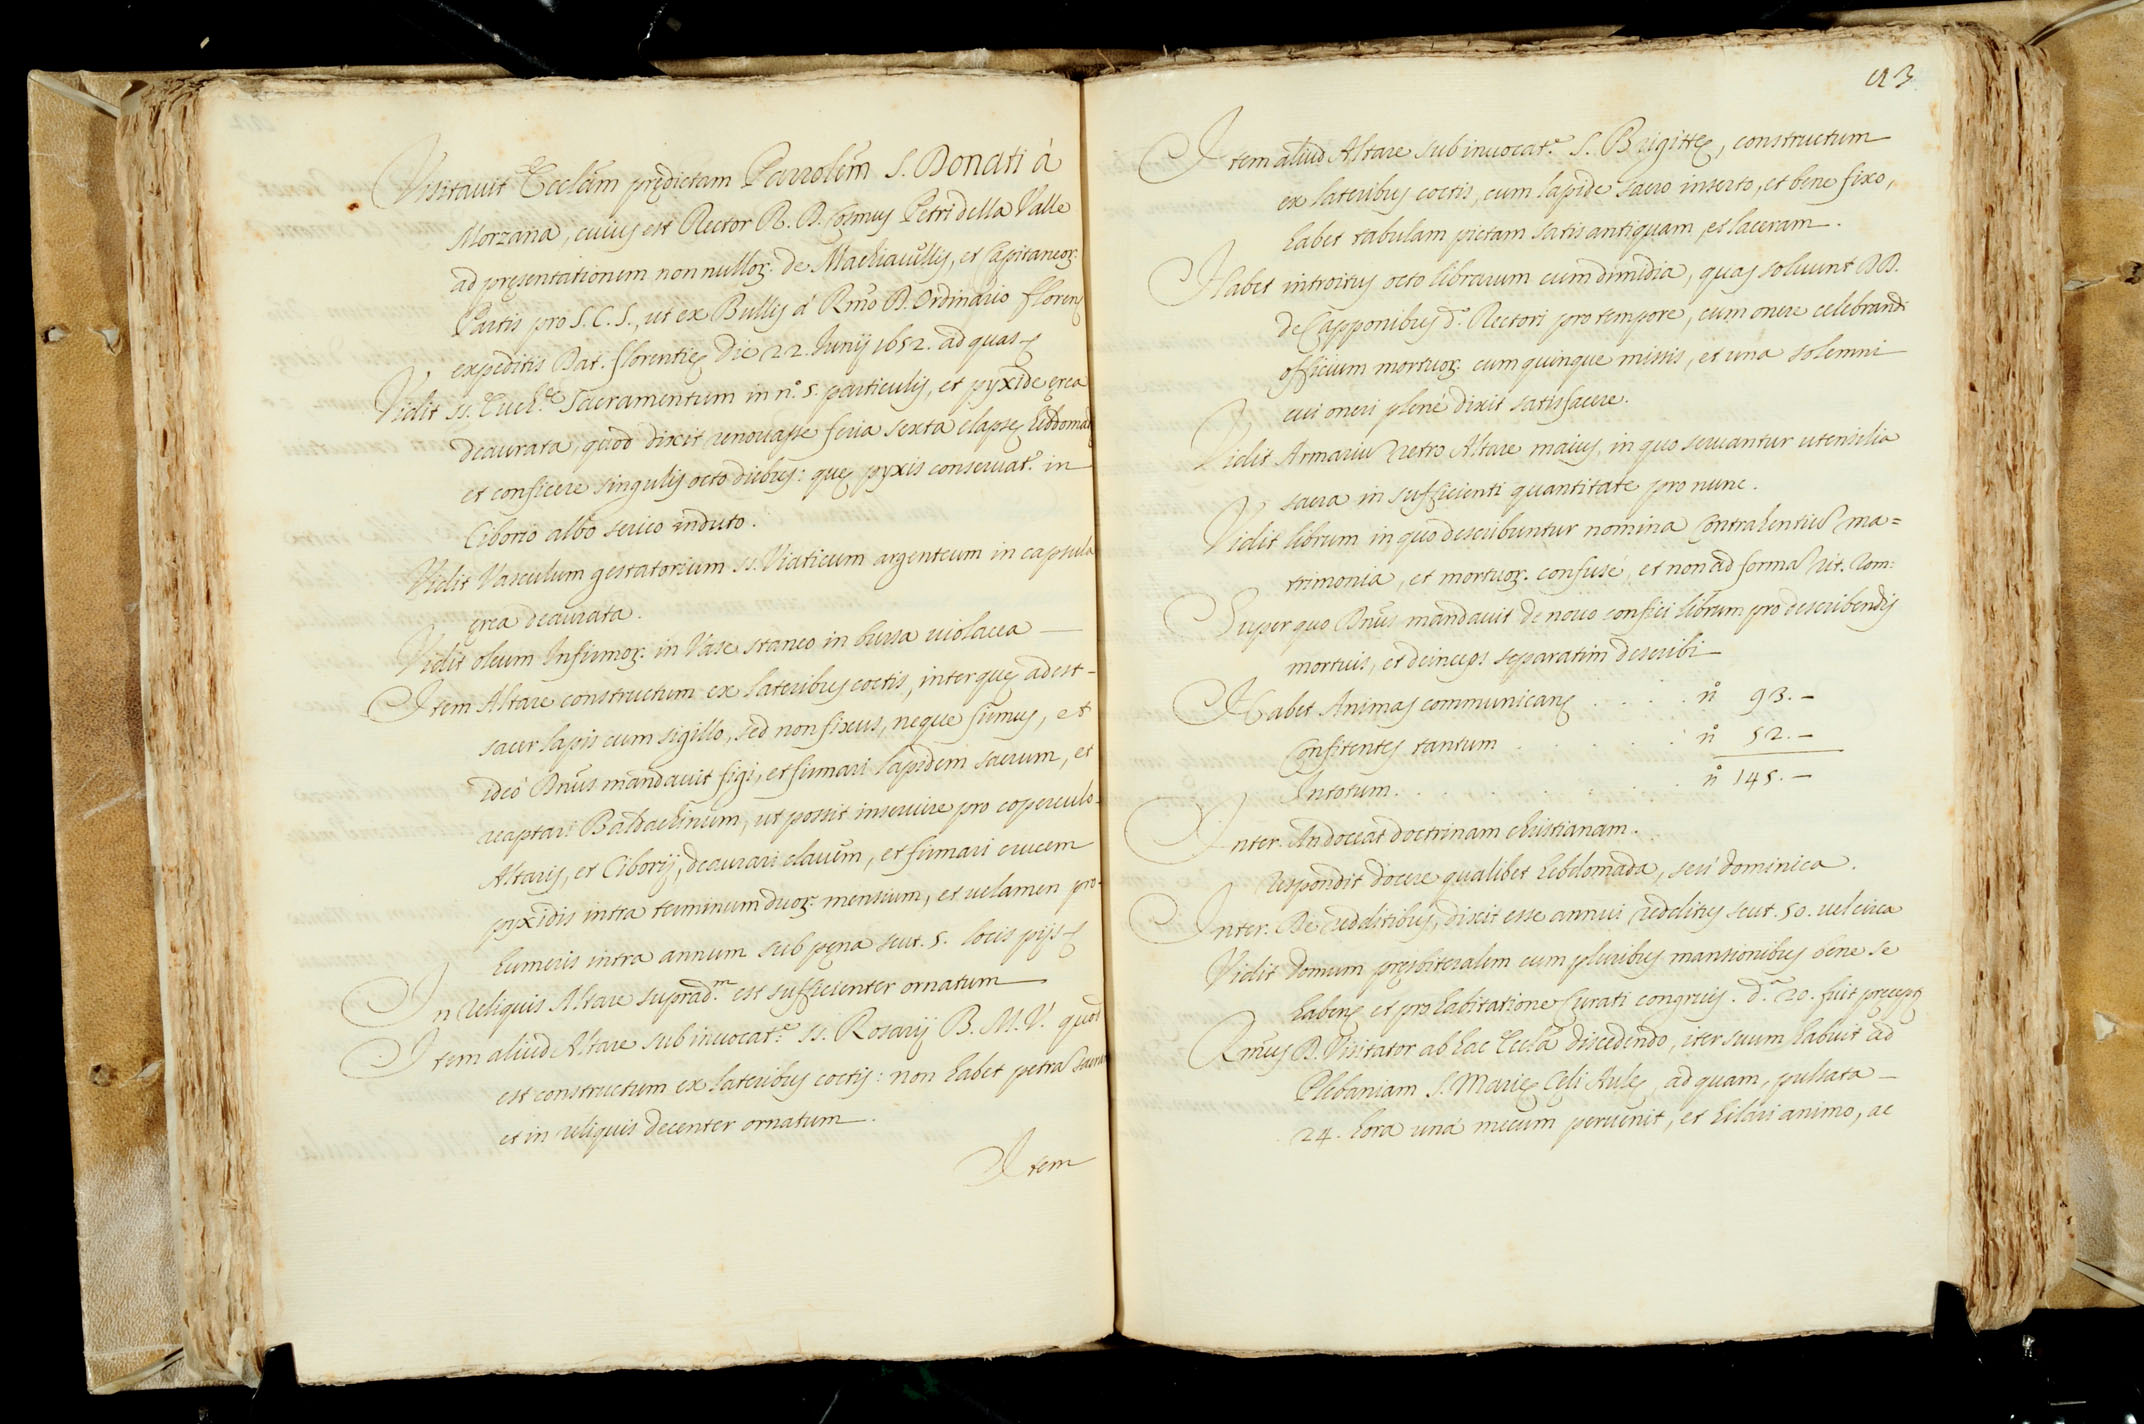 Visitavit Eccl̃am prędictam Parrolẽm S. Donati à
Morzana, cuius est Rector R. D. Cosmus Petri della Valle
ad pręsentationem nonnulloꝝ. de Machiavellis, et Capitaneoꝝ:
Partis pro S.C.S., ut ex Bullis à Rm̃o D. Ordinario floren̄
expeditis Dat. florentię Die 22. Junij 1652. ad quas
Vidit ss. Euch.ę Sacramentum in n.º 5. particulis, et pyxide ęrea
deaurata, quod dixit renovasse feria sexta elapsę hebdomadę
et conficere singulis octo diebus: quę pyxis conservat.r in
Ciborio albo serico induto.
Vidit Vasculum gestatorium ss. Viaticum argenteum in capsula
ęrea deaurata.
Vidit oleum Infirmoꝝ: in Vase staneo in bursa violacea —
Item Altare constructum ex lateribus coctis, inter quę adest -
sacer lapis cum sigillo, sed non fixus, neque firmus, et
ideò Dñus mandavit figi, et firmari lapidem sacrum, et
reaptari Baldachinum, ut possit inservire pro coperculo
Altaris, et Ciborij, deaurari clavem, et firmari crucem
pyxidis intra terminum duoꝝ: mensium, et velamen pro-
humeris intra annum sub pęna scut. 5. locis pijs
In reliquis Altare suprad.m est sufficienter ornatum —
Item aliud Altare sub invocat.e ss. Rosarij B.M.V. quod
est constructum ex lateribus coctis: non habet petrã sacram
et in reliquis decenter ornatum.
Item
Item aliud Altare sub invocat.e S. Brigittę, constructum
ex lateribus coctis, cum lapide sacro inserto, et bene fixo,
habet tabulam pictam satis antiquam, et laceram.
Habet introitus octo librarum cum dimidia, quas solvunt DD.
de Capponibus d.o Rectori pro tempore, cum onere celebrandi
officium mortuoꝝ. cum quinque missis, et una solemni
cui oneri plenè dixit satisfacere.
Vidit Armariũ retro Altare maius, in quo servantur utensilia
sacra in sufficienti quantitate pro nunc.
Vidit librum in quo describuntur nomina Contrahentiũ ma=
trimonia, et mortuoꝝ. confusè, et non ad formã Rit. Rom:
Super quo Dñus mandavit de novo confici librum pro describendis
mortuis, et deinceps separatim describi —
Habet Animas communicanes . . . . . n.º 93. —
Confitentes tantum . . . . . . n.º 52. —
In totum . . . . . . . . n.º 145. —
Inter. An doceat doctrinam christianam.
Respondit docere qualibet hebdomada, seù dominica.
Inter. De redditibus, dixit esse annui redditus scut. 50. vel circa
Vidit Domum pręsbiteralem cum pluribus mansionibus bene se
habenes et pro habitatione Curati congruis. d.a 20. fuit
Rm̃us D. Visitator ab hac Eccl̃a discedendo, iter suum habuit ad
Plebaniam S. Marię Cęli Aulę, ad quam, pulsata —
24. hora unà mecum pervenit, et hilari animo, ac